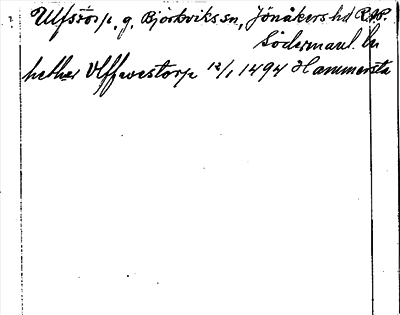 Ulfstorp, g. Björkviks sn, Jönåkers hd
Södermanl. län
hether Vlffwestorp 12/1 1494 Hammersta